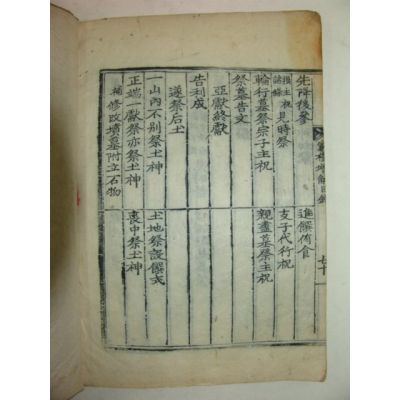 家禮增解目錄
先降後參 進饌侑食
見時祭 支子代行祝
輪行墓祭宗子主祝 親盡墓祭主祝
祭墓告文
亞獻終獻
告利成
遂祭后土
一山內不別祭土神 土地祭設饌式
一獻祭亦祭土神 喪中祭土神
補修改墳墓附立石物